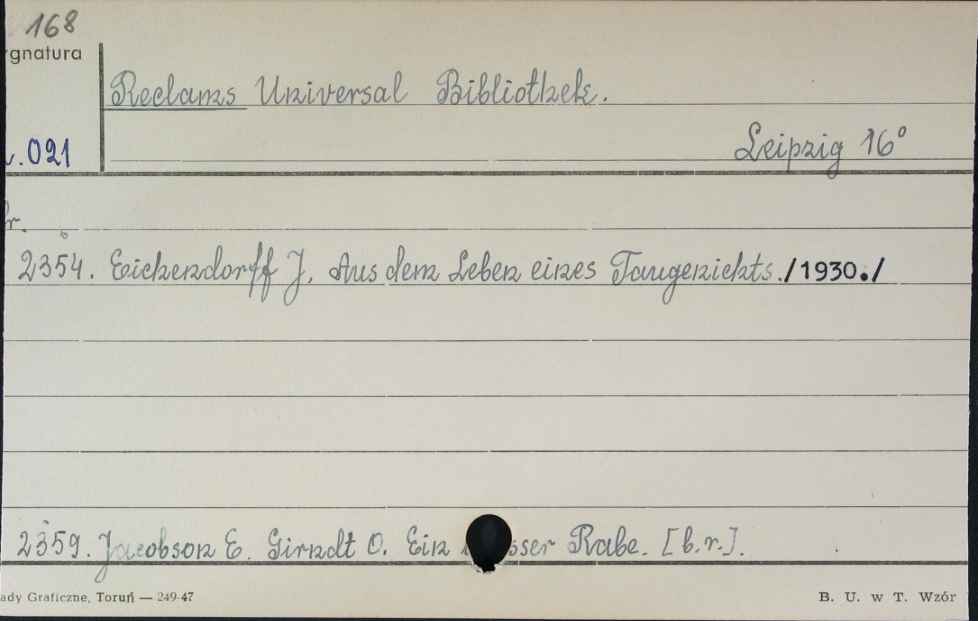 168
gnatura
Reclams Universal Bibliothek.
.021
Leipzig 16°
r.
2354. Eichendorff J. Aus dem Leben eines Taugenichts. /1930./
2359. Jacobson E. Girndt O. Ein sser Rabe. [b.r.].
ady Graficzne, Toruń — 249-47
B. U. w T. Wzór